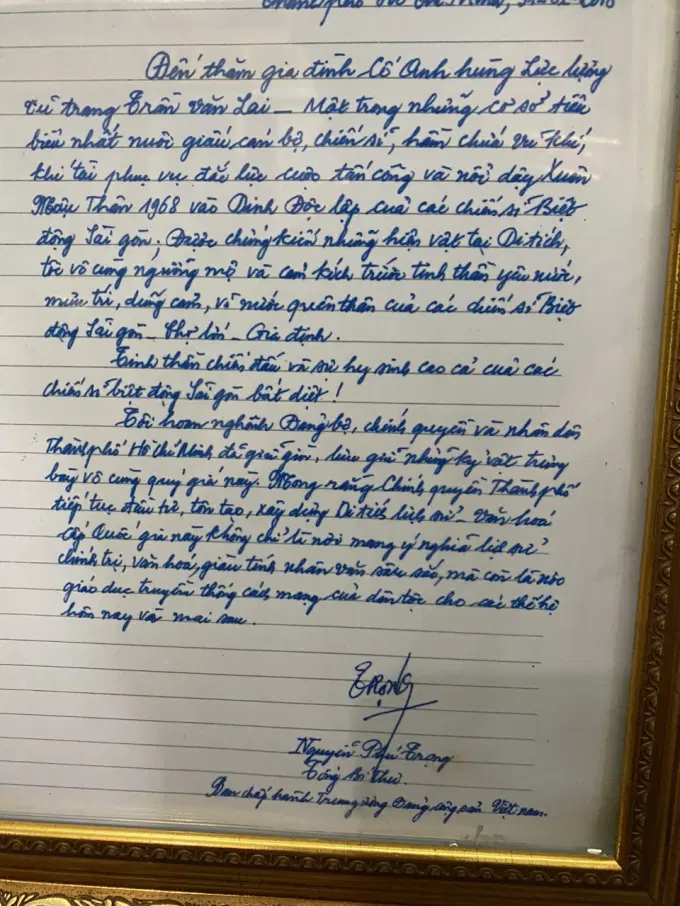 Thành phố Hồ Chí Minh,
Đến thăm gia đình Cố Anh hùng Lực lượng
vũ trang Trần Văn Lai - Một trong những cơ sở tiêu
biểu nhất nuôi giấu cán bộ, chiến sĩ, hầm chứa vũ khí,
khí tài phục vụ đắc lực cuộc tấn công và nổi dậy Xuân
Mậu Thân 1968 vào Dinh Độc lập của các chiến sĩ Biệt
động Sài gòn; Được chứng kiến những hiện vật tại Di tích,
tôi vô cùng ngưỡng mộ và cảm kích trước tinh thần yêu nước,
mưu trí, dũng cảm, vì nước quên thân của các chiến sĩ Biệt
động Sài gòn - Chợ lớn - Gia định.
Tinh thần chiến đấu và sự hy sinh cao cả của các
chiến sĩ biệt động Sài gòn bất diệt!
Tôi hoan nghênh Đảng bộ, chính quyền và nhân dân
Thành phố Hồ Chí Minh đã giữ gìn, lưu giữ những kỷ vật trưng
bày vô cùng quý giá này. Mong rằng Chính quyền Thành phố
tiếp tục đầu tư, tôn tạo, xây dựng Di tích lịch sử - Văn hoá
cấp Quốc gia này không chỉ là nơi mang ý nghĩa lịch sử
chính trị, văn hoá, giàu tính nhân văn sâu sắc, mà còn là nơi
giáo dục truyền thống cách mạng của dân tộc cho các thế hệ
hôm nay và mai sau.
TRỌNG
Nguyễn Phú Trọng
Tổng Bí thư
Ban chấp hành Trung ương Đảng cộng sản Việt nam.